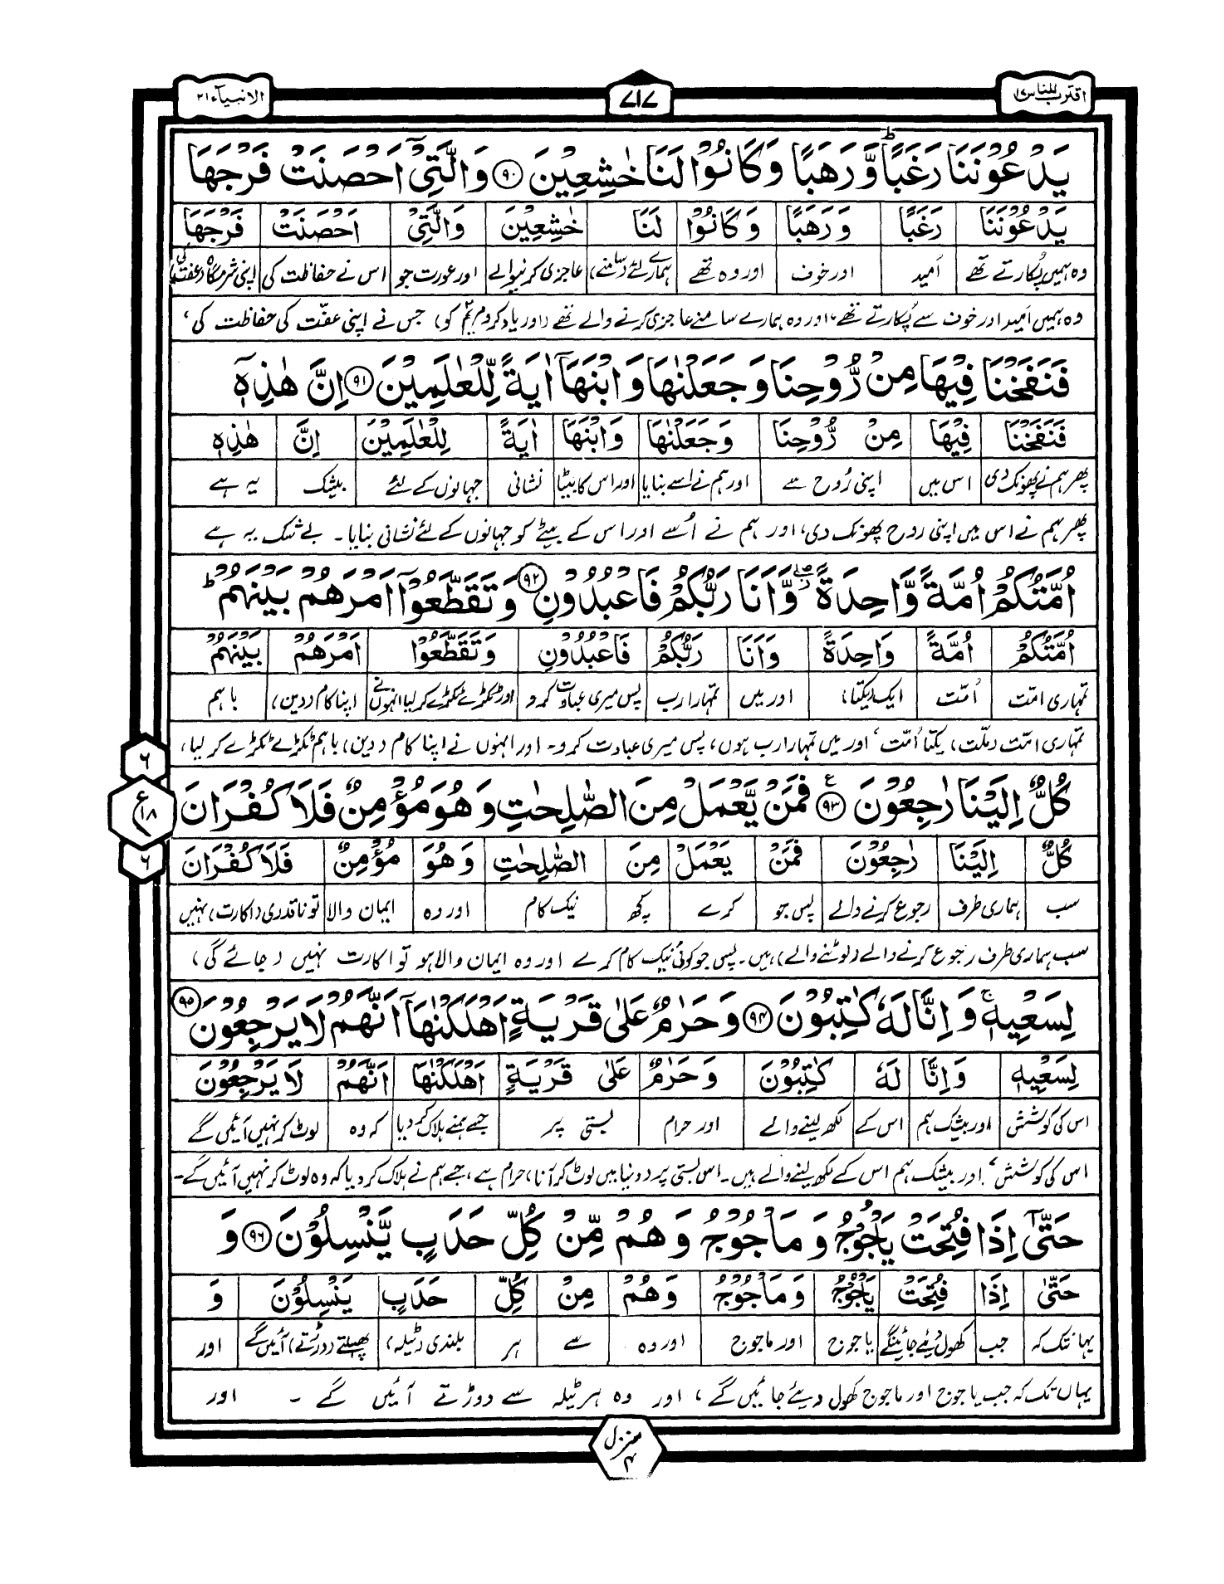 اقترب للناس ۱۷
۷۱۷
الانبیآء ۲۱
يَدْعُوْنَنَا رَغَبًا وَّرَهَبًا ؕ وَكَانُوْا لَنَا خٰشِعِيْنَ ۹۰ وَالَّتِيْۤ اَحْصَنَتْ فَرْجَهَا
يَدْعُوْنَنَا رَغَبًا وَ رَهَبًا وَكَانُوْا لَنَا خٰشِعِيْنَ وَالَّتِيْۤ اَحْصَنَتْ فَرْجَهَا
وہ ہمیں پُکارتے تھے اُمید اور خوف اور وہ تھے ہمارے لئے (سامنے) عاجزی کرنیوالے اور عورت جو اس نے حفاظت کی اپنی شرمگاہ (عفت) کی
وہ ہمیں اُمید اور خوف سے پُکارتے تھے، اور وہ ہمارے سامنے عاجزی کرنے والے تھے (اور یاد کرو مریمؑ کو) جس نے اپنی عفّت کی حفاظت کی ،
فَنَفَخْنَا فِيْهَا مِنْ رُّوْحِنَا وَجَعَلْنٰهَا وَابْنَهَاۤ اٰيَةً لِّلْعٰلَمِيْنَ ۹۱ اِنَّ هٰذِهٖۤ
فَنَفَخْنَا فِيْهَا مِنْ رُّوْحِنَا وَجَعَلْنٰهَا وَابْنَهَاۤ اٰيَةً لِلْعٰلَمِيْنَ اِنَّ هٰذِهٖۤ
پھر ہم نے پھونک دی اس میں اپنی رُوح سے اور ہم نے اسے بنایا اور اس کا بیٹا نشانی جہانوں کے لئے بیشک یہ ہے
پھر ہم نے اس میں اپنی روح پھونک دی، اور ہم نے اُسے اور اس کے بیٹے کو جہانوں کے لئے نشانی بنایا۔ بے شک یہ ہے
اُمَّتُكُمْ اُمَّةً وَّاحِدَةً ۖ وَّاَنَا رَبُّكُمْ فَاعْبُدُوْنِ ۹۲ وَتَقَطَّعُوْۤا اَمْرَهُمْ بَيْنَهُمْ ؕ
اُمَّتُكُمْ اُمَّةً وَاحِدَةً وَاَنَا رَبُّكُمْ فَاعْبُدُوْنِ وَتَقَطَّعُوْۤا اَمْرَهُمْ بَيْنَهُمْ
تمہاری امّت اُمّت ایک (یکتا) اور میں تمہارا رب پس میری عبادت کرو اور ٹکڑے ٹکڑے کر لیا انہوں نے اپنا کام (دین) باہم
تمہاری امّت (ملّت) یکتا اُمّت، اور میں تمہارا رب ہوں، پس میری عبادت کرو۔ اور انہوں نے اپنا کام (دین) باہم ٹکڑے ٹکڑے کر لیا،
كُلٌّ اِلَيْنَا رٰجِعُوْنَ ۹۳ فَمَنْ يَّعْمَلْ مِنَ الصّٰلِحٰتِ وَهُوَ مُؤْمِنٌ فَلَا كُفْرَانَ
۶
ع ۱۸
۶
كُلٌّ اِلَيْنَا رٰجِعُوْنَ فَمَنْ يَعْمَلْ مِنَ الصّٰلِحٰتِ وَهُوَ مُؤْمِنٌ فَلَا كُفْرَانَ
سب ہماری طرف رجوع کرنے والے پس جو کرے کچھ نیک کام اور وہ ایمان والا تو ناقدری (اکارت) نہیں
سب ہماری طرف رجوع کرنے والے (لوٹنے والے) ہیں۔ پس جو کوئی نیک کام کرے اور وہ ایمان والا ہو تو اکارت نہیں (جائے گی)
لِسَعْيِهٖ ۚ وَاِنَّا لَهٗ كٰتِبُوْنَ ۹۴ وَحَرٰمٌ عَلٰى قَرْيَةٍ اَهْلَكْنٰهَاۤ اَنَّهُمْ لَا يَرْجِعُوْنَ ۹۵
لِسَعْيِهٖ وَاِنَّا لَهٗ كٰتِبُوْنَ وَحَرٰمٌ عَلٰى قَرْيَةٍ اَهْلَكْنٰهَاۤ اَنَّهُمْ لَا يَرْجِعُوْنَ
اس کی کوشش اور بیشک ہم اس کے لکھ لینے والے اور حرام بستی پر جسے ہمنے ہلاک کر دیا کہ وہ لوٹ کر نہیں آئیں گے
اس کی کوشش، اور بیشک ہم اس کے لکھ لینے والے ہیں۔ اس بستی پر (دنیا میں لوٹ کر آنا) حرام ہے، جسے ہم نے ہلاک کر دیا کہ وہ لوٹ کر نہیں آئیں گے۔
حَتّٰىۤ اِذَا فُتِحَتْ يَاْجُوْجُ وَمَاْجُوْجُ وَهُمْ مِّنْ كُلِّ حَدَبٍ يَّنْسِلُوْنَ ۹۶ وَ
حَتّٰى اِذَا فُتِحَتْ يَاْجُوْجُ وَمَاْجُوْجُ وَهُمْ مِنْ كُلِّ حَدَبٍ يَنْسِلُوْنَ وَ
یہانتک کہ جب کھول دیئے جائینگے یاجوج اور ماجوج اور وہ سے ہر بلندی (ٹیلہ) پھسلتے (دوڑتے) آئیں گے اور
یہاں تک کہ جب یاجوج اور ماجوج کھول دیئے جائیں گے، اور وہ ہر ٹیلہ سے دوڑتے آئیں گے ۔ اور
منزل ۴